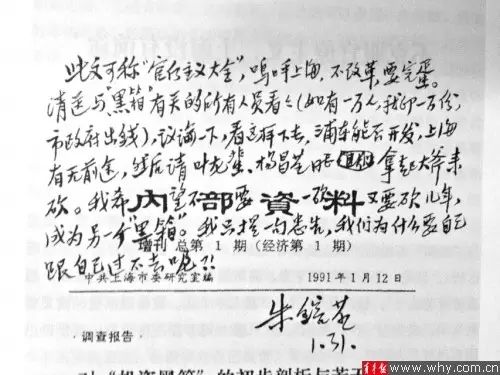 此文可称“官僚主义大全”，呜呼上海，不改革，要完蛋。
请送与“黑箱”有关的所有人员看看（如有一万人，我印一万份，
市政府出錢），议论一下，看这样下去，浦东能否开发，上海
有无前途，然后请叶龙蜚、杨昌基同志拿起大斧来
砍。我希望不要一砍又要砍几年，
内部資料
成为另一个“黑箱”。我只提一句忠告，我们为什么要自己
增刊 总第1期（经济第1期）
跟自己过不去呢?!
中共上海市委研究室编 1991年1月12日
朱镕基
1.31.
·调查报告·
对“投资黑箱”的初步剖析与若干
青年报 www.why.com.cn